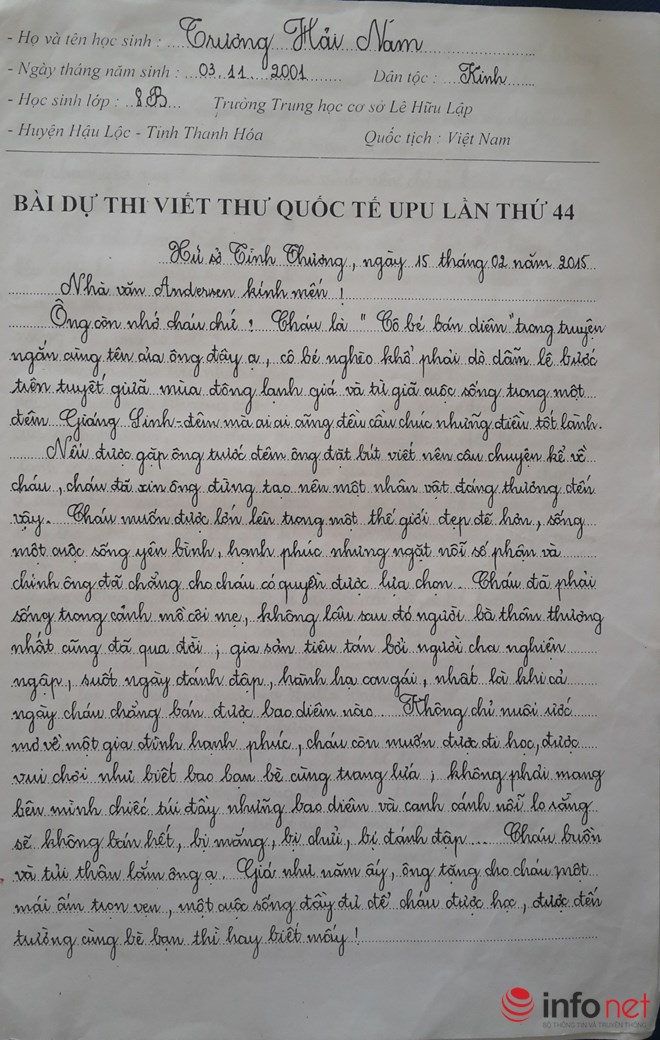 - Họ và tên học sinh : Trương Hải Nám
- Ngày tháng năm sinh : 03.11.2001 Dân tộc : Kinh
- Học sinh lớp : 8B Trường Trung học cơ sở Lê Hữu Lập
- Huyện Hậu Lộc - Tỉnh Thanh Hóa Quốc tịch : Việt Nam
BÀI DỰ THI VIẾT THƯ QUỐC TẾ UPU LẦN THỨ 44
Xứ sở Tình Thương, ngày 15 tháng 02 năm 2015
Nhà văn Andersen kính mến !
Ông còn nhớ cháu chứ ! Cháu là " Cô bé bán diêm" trong truyện
ngắn cùng tên của ông đây ạ, cô bé nghèo khổ phải dò dẫm lê bước
trên tuyết giữa mùa đông lạnh giá và từ giã cuộc sống trong một
đêm Giáng Sinh - đêm mà ai ai cũng đều cầu chúc những điều tốt lành.
Nếu được gặp ông trước đêm ông đặt bút viết nên câu chuyện kể về
cháu, cháu đã xin ông đừng tạo nên một nhân vật đáng thương đến
vậy. Cháu muốn được lớn lên trong một thế giới đẹp đẽ hơn, sống
một cuộc sống yên bình, hạnh phúc nhưng ngặt nỗi số phận và
chính ông đã chẳng cho cháu có quyền được lựa chọn. Cháu đã phải
sống trong cảnh mồ côi mẹ, không lâu sau đó người bà thân thương
nhất cũng đã qua đời ; gia sản tiêu tán bởi người cha nghiện
ngập, suốt ngày đánh đập, hành hạ con gái, nhất là khi cả
ngày cháu chẳng bán được bao diêm nào. Không chỉ nuôi ước
mơ về một gia đình hạnh phúc, cháu còn muốn được đi học, được
vui chơi như biết bao bạn bè cùng trang lứa ; không phải mang
bên mình chiếc túi đầy những bao diêm và canh cánh nỗi lo rằng
sẽ không bán hết, bị mắng, bị chửi, bị đánh đập... Cháu buồn
và tủi thân lắm ông ạ. Giá như năm ấy, ông tặng cho cháu một
mái ấm trọn vẹn, một cuộc sống đầy đủ để cháu được học, được đến
trường cùng bè bạn thì hay biết mấy !
infonet
BỘ THÔNG TIN VÀ TRUYỀN THÔNG